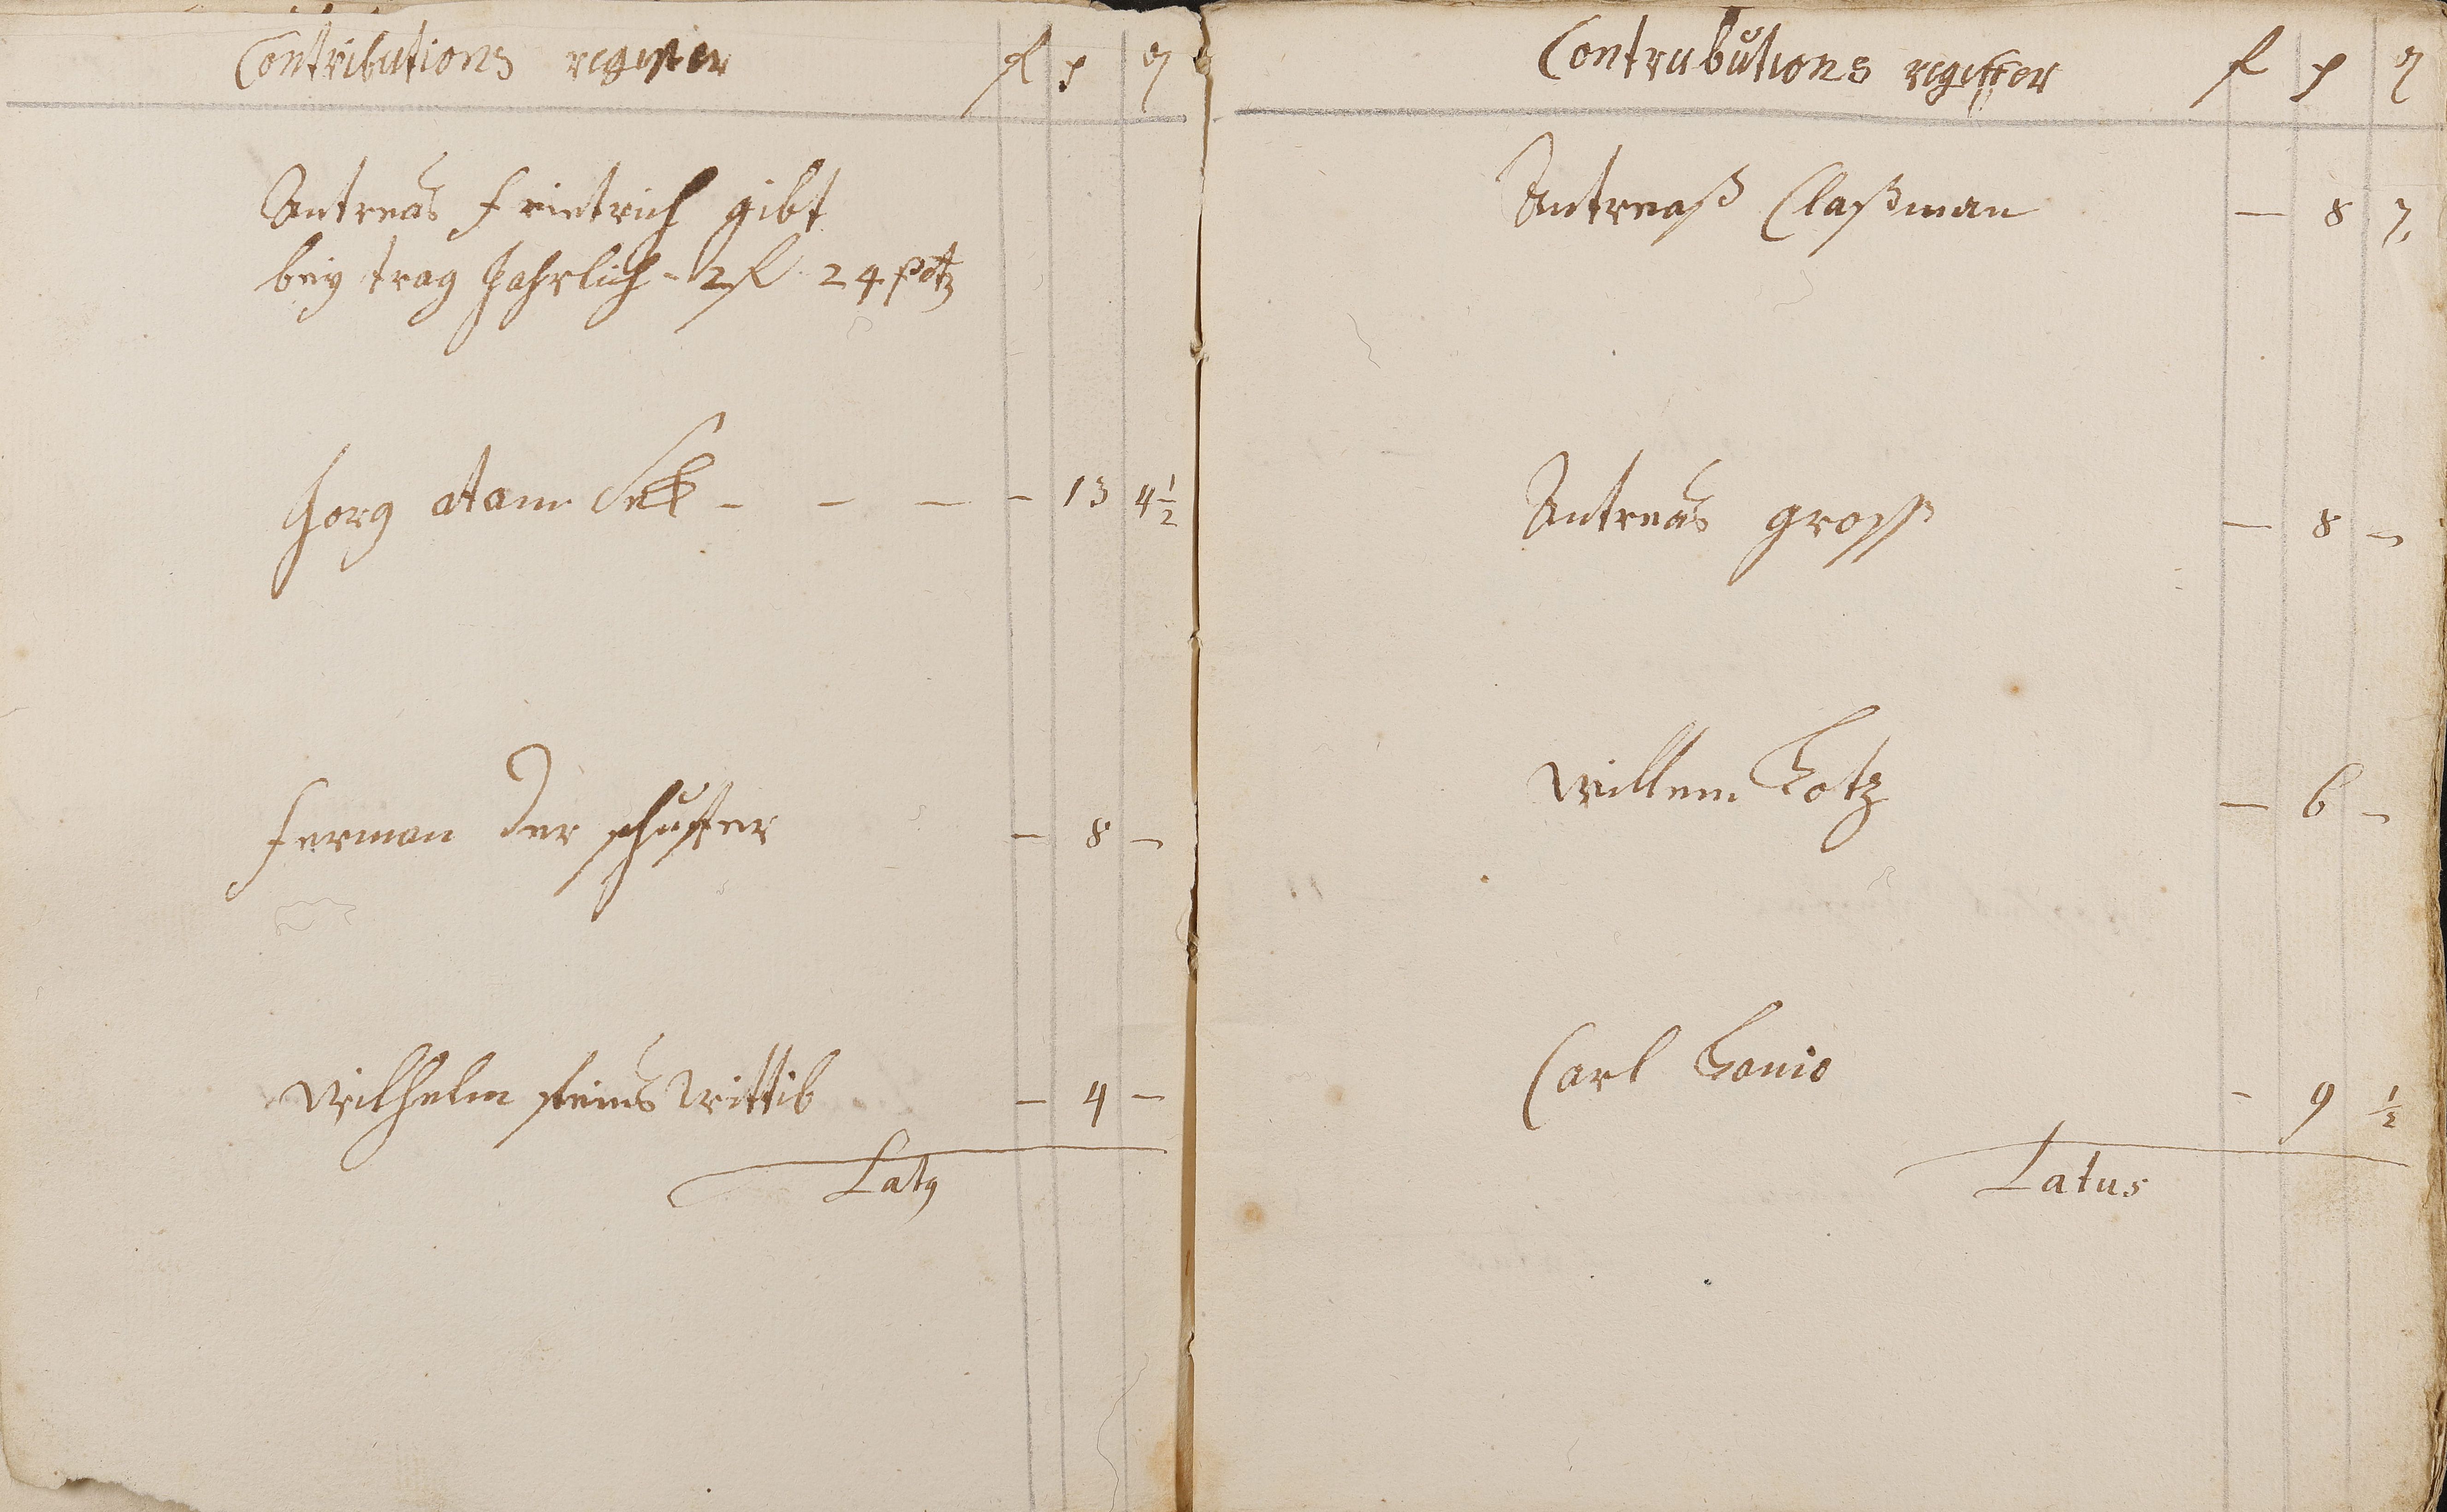 Contributions register f ß ₰
Antreas frietrich gibt
beij trag Jahrlich - 2 f 24
Jorg atam - - - - 13 4½
ferman der schuster - 8 -
Wilhelm steins Wittib - 4 -
Latus
Contrubutions register f ß ₰
Antreaß Claßman - 8 7
Antreas gross - 8 -
Willem Lotz - 6 -
Carl - 9 ½
Latus